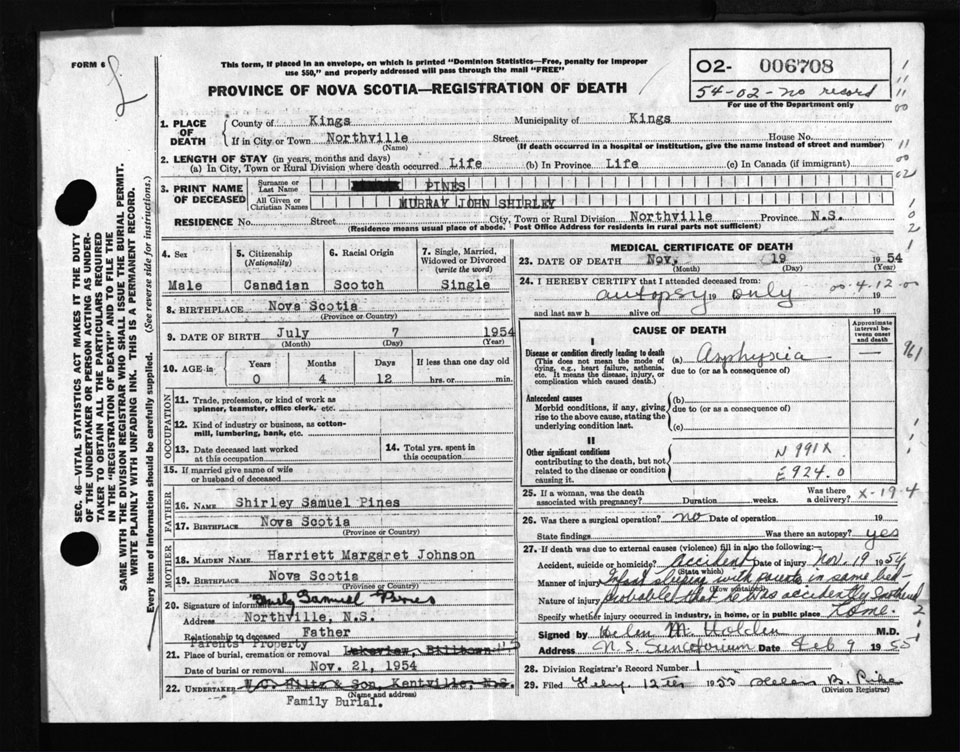 FORM 6
This form, if placed in an envelope, on which is printed "Dominion Statistics—Free, penalty for improper
use $50," and properly addressed will pass through the mail "FREE"
PROVINCE OF NOVA SCOTIA—REGISTRATION OF DEATH
O2- 006708
54-02-no record
For use of the Department only
1. PLACE OF DEATH
County of Kings Municipality of Kings
If in City or Town Northville Street House No.
(Name) (If death occurred in a hospital or institution, give the name instead of street and number)
2. LENGTH OF STAY (in years, months and days)
(a) In City, Town or Rural Division where death occurred Life (b) In Province Life (c) In Canada (if immigrant)
3. PRINT NAME OF DECEASED
Surname or Last Name PINES
All Given or Christian Names MURRAY JOHN SHIRLEY
RESIDENCE No. Street City, Town or Rural Division Northville Province N.S.
(Residence means usual place of abode. Post Office Address for residents in rural parts not sufficient)
4. Sex Male
5. Citizenship (Nationality) Canadian
6. Racial Origin Scotch
7. Single, Married, Widowed or Divorced (write the word) Single
8. BIRTHPLACE Nova Scotia
(Province or Country)
9. DATE OF BIRTH July 7 1954
(Month) (Day) (Year)
10. AGE in Years Months Days If less than one day old
0 4 12 hrs. or min.
OCCUPATION
11. Trade, profession, or kind of work as
spinner, teamster, office clerk, etc.
12. Kind of industry or business, as cotton-
mill, lumbering, bank, etc.
13. Date deceased last worked
at this occupation
14. Total yrs. spent in
this occupation
15. If married give name of wife
or husband of deceased
FATHER
16. NAME Shirley Samuel Pines
17. BIRTHPLACE Nova Scotia
(Province or Country)
MOTHER
18. MAIDEN NAME Harriett Margaret Johnson
19. BIRTHPLACE Nova Scotia
(Province or Country)
20. Signature of informant Samuel Pines
Address Northville, N.S.
Relationship to deceased Father
Parents Property
21. Place of burial, cremation or removal Lakeview, Billtown
Date of burial or removal Nov. 21, 1954
22. UNDERTAKER & Son, Kentville, N.S.
(Name and address)
Family Burial.
MEDICAL CERTIFICATE OF DEATH
23. DATE OF DEATH Nov. 19 1954
(Month) (Day) (Year)
24. I HEREBY CERTIFY that I attended deceased from
autopsy 19 only 00-4-12-0
and last saw h alive on 19
CAUSE OF DEATH
Approximate interval between onset and death
I
Disease or condition directly leading to death
(This does not mean the mode of
dying, e.g., heart failure, asthenia,
etc. It means the disease, injury, or
complication which caused death.)
(a) Asphyxia —
due to (or as a consequence of)
Antecedent causes
Morbid conditions, if any, giving
rise to the above cause, stating the
underlying condition last.
(b)
due to (or as a consequence of)
(c)
II
Other significant conditions
contributing to the death, but not
related to the disease or condition
causing it.
N 991X
E924.0
25. If a woman, was the death associated with pregnancy? Duration weeks. Was there a delivery? X-19-4
26. Was there a surgical operation? no Date of operation 19
State findings Was there an autopsy? yes
27. If death was due to external causes (violence) fill in also the following:
Accident, suicide or homicide? Accident Date of injury Nov. 19 1954
(State which)
Manner of injury Infant sleeping with parents in same bed
(How sustained)
Nature of injury probable that he was accidently
Specify whether injury occurred in industry, in home, or in public place Home.
Signed by Helen M. Holden M.D.
Address N.S. Sanatorium Date Feb 9 1955
28. Division Registrar's Record Number 1
29. Filed Feby. 12th 1955 B. Pike
(Division Registrar)
SEC. 46—VITAL STATISTICS ACT MAKES IT THE DUTY
OF THE UNDERTAKER OR PERSON ACTING AS UNDER-
TAKER TO OBTAIN ALL THE PARTICULARS REQUIRED
IN THE "REGISTRATION OF DEATH" AND TO FILE THE
SAME WITH THE DIVISION REGISTRAR WHO SHALL ISSUE THE BURIAL PERMIT.
WRITE PLAINLY WITH UNFADING INK. THIS IS A PERMANENT RECORD.
Every item of information should be carefully supplied. (See reverse side for instructions.)